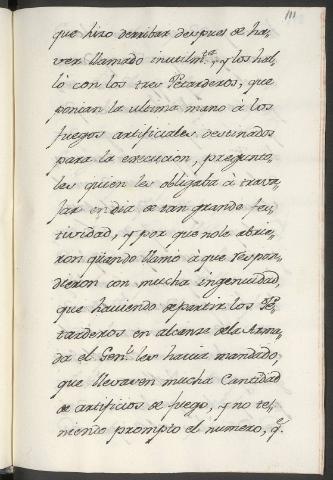 111
que hizo derribar despues de ha-
ver llamado inutilmte, y los hal-
ló con los tres Petarderos, que
ponian la ultima mano à los
fuegos artificiales destinados
para la execucion, pregunto-
les quien les obligaba à trava-
jar en dia de tan grande fes-
tividad, y por que nole abrie-
ron quando llamò à que respon-
dieron con mucha ingenuidad,
que haviendo de partir los Pe-
tarderos en alcanze dela Arma-
da el Genl. les havia mandado,
que llevasen mucha Cantidad
de artificios de fuego, y no te-
niendo prompto el numero, qe.